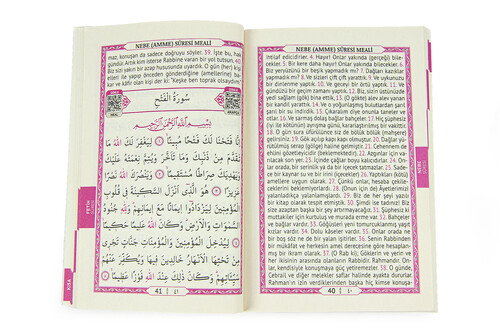 NEBE (AMME) SÛRESİ MEALİ
ihtilaf edicidirler. 4. Hayır! Onlar yakında (gerçeği) bile-
cekler. 5. Bir kere daha hayır! Onlar yakında bilecekler. 6.
Biz yeryüzünü bir beşik yapmadık mı? Dağları kazıklar
yapmadık mı? 8. Ve sizleri çift çift yarattık. 9. Uykunuzu
bir dinlenme yaptık. 10. Ve geceyi bir örtü yaptık. 11.
gündüzü de geçim zamanı yaptık. 12. Biz, sizin üstünüzde
yedi sağlam (gök) bina ettik, 13. (O gökte) alev alev yanan
bir kandil yarattık. 14.
sarıl bir su indirdik. 15. Onunla taneler, bitkiler,
16. Ve sarmaş dolaş bağlar bahçeler. 17. Hiç şüphesiz
18. O gün sûra üfürülünce siz de bölük bölük (mahşere)
gelirsiniz. 19. Gök açılıp kapı kapı olmuştur. 20. Dağlar
yürütülüp serap (gölge) haline gelmiştir. 21. Cehennem de
23. Onlar içinde çağlar boyu kalacaklardır. 24. On-
lar orada, bir serinlik ve bir içecek tatmazlar. 25. Sade-
ce bir kaynar su ve bir irin (içecekler) 26. Yaptıkları (kötü)
amellere uygun olarak. 27. Çünkü onlar, hesaba çekile-
ceklerini beklemezlerdi. 28. (Onun için de) Âyetlerimizi
yalanladıkça yalanlamışlardı. 29. Biz de her şeyi yazılı
bir kitap olarak tespit etmiştik. 30. Şimdi ise tadınız! Biz
size azaptan başka bir şey artırmayacağız. 31. Şüphesiz ki
muttakiler için kurtuluş ve murada erme var. 32. Bahçeler
var, üzümler var. 33. Göğüsleri yeni tomurcuklanmış yaşıt
kızlar. 34. Dolu kâseler vardır. 35. Onlar orada ne
bir boş söz ne de bir yalan işitirler. 36. Senin Rabbinden
bir mükâfat ve herkesin amel derecesine göre hesabınca
bir ihsan olmak üzere. 37. (O Rab ki); Göklerin ve yerin ve
her ikisinin arasında olanların Rabbidir. Rahmandır. On-
lar, kendisiyle konuşmaya güç yetiremezler. 38. O günde,
Cebrail ve diğer melekler saflar halinde ayakta dururlar.
Rahman'ın izin verdikinden başka hiç kimse konuşa-
NEBE
SÛRESİ
40 | ٤٠
NEBE (AMME) SÛRESİ MEALİ
maz, konuşan da sadece doğruyu söyler. 39. İşte bu, hak
gündür. Artık kim isterse Rabbine varan bir yol tutsun. 40.
Biz sizi yakın bir azap hususunda uyardık. O gün (her) kişi
elleri ile yapıp önceden gönderdiğine (amellerine) ba-
kar ve kâfir olan kişi der ki: "Keşke ben toprak olsaydım"
سُورَةُ الْفَتْحِ
بِسْمِ اللّٰهِ الرَّحْمٰنِ الرَّحِيمِ
اِنَّا فَتَحْنَا لَكَ فَتْحًا مُبِينًا ﴿١﴾ لِيَغْفِرَ لَكَ اللّٰهُ مَا
تَقَدَّمَ مِنْ ذَنْبِكَ وَمَا تَاَخَّرَ وَيُتِمَّ نِعْمَتَهُ عَلَيْكَ
وَيَهْدِيَكَ صِرَاطًا مُسْتَقِيمًا ﴿٢﴾ وَيَنْصُرَكَ اللّٰهُ نَصْرًا
عَزِيزًا ﴿٣﴾ هُوَ الَّذِي اَنْزَلَ السَّكِينَةَ فِي قُلُوبِ
الْمُؤْمِنِينَ لِيَزْدَادُوا اِيمَانًا مَعَ اِيمَانِهِمْ وَلِلّٰهِ جُنُودُ
السَّمٰوَاتِ وَالْاَرْضِ وَكَانَ اللّٰهُ عَلِيمًا حَكِيمًا ﴿٤﴾
لِيُدْخِلَ الْمُؤْمِنِينَ وَالْمُؤْمِنَاتِ جَنَّاتٍ تَجْرِي
مِنْ تَحْتِهَا الْاَنْهَارُ خَالِدِينَ فِيهَا وَيُكَفِّرَ عَنْهُمْ
سَيِّـَٔاتِهِمْ وَكَانَ ذٰلِكَ عِنْدَ اللّٰهِ فَوْزًا عَظِيمًا ﴿٥﴾
FETİH
SÛRESİ
KISA
41 | ٤١